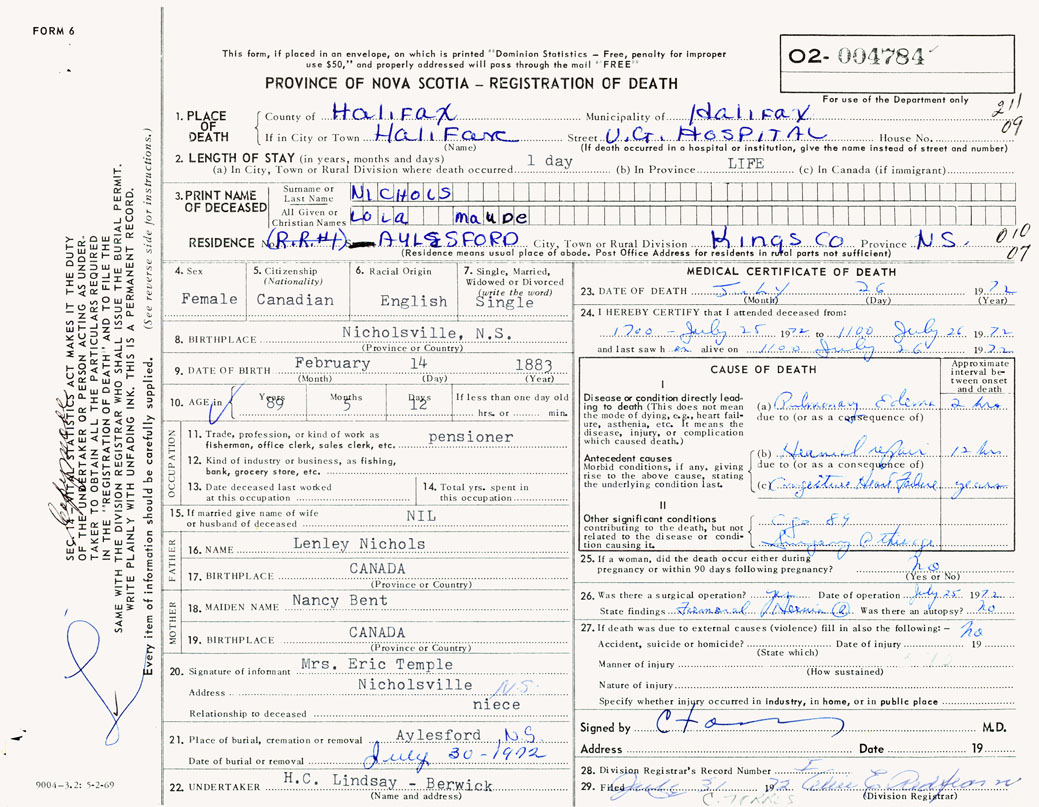 FORM 6
This form, if placed in an envelope, on which is printed "Dominion Statistics — Free, penalty for improper
use $50," and properly addressed will pass through the mail "FREE"
02- 004784
For use of the Department only
PROVINCE OF NOVA SCOTIA — REGISTRATION OF DEATH
211
09
1. PLACE OF DEATH
County of Halifax Municipality of Halifax
If in City or Town Halifax Street V.G. HOSPITAL House No.
(Name) (If death occurred in a hospital or institution, give the name instead of street and number)
2. LENGTH OF STAY (in years, months and days)
(a) In City, Town or Rural Division where death occurred 1 day (b) In Province LIFE (c) In Canada (if immigrant)
3. PRINT NAME OF DECEASED
Surname or Last Name NICHOLS
All Given or Christian Names Lola maude
RESIDENCE No. (R.R.#1) AYLESFORD City, Town or Rural Division Kings Co Province N.S.
010
07
(Residence means usual place of abode. Post Office Address for residents in rural parts not sufficient)
4. Sex
Female
5. Citizenship
(Nationality)
Canadian
6. Racial Origin
English
7. Single, Married,
Widowed or Divorced
(write the word)
Single
8. BIRTHPLACE Nicholsville, N.S.
(Province or Country)
9. DATE OF BIRTH February 14 1883
(Month) (Day) (Year)
10. AGE in Years Months Days If less than one day old
89 5 12 hrs. or min.
OCCUPATION
11. Trade, profession, or kind of work as
fisherman, office clerk, sales clerk, etc. pensioner
12. Kind of industry or business, as fishing,
bank, grocery store, etc.
13. Date deceased last worked
at this occupation
14. Total yrs. spent in
this occupation
15. If married give name of wife
or husband of deceased NIL
FATHER
16. NAME Lenley Nichols
17. BIRTHPLACE CANADA
(Province or Country)
MOTHER
18. MAIDEN NAME Nancy Bent
19. BIRTHPLACE CANADA
(Province or Country)
20. Signature of informant Mrs. Eric Temple
Address Nicholsville N.S.
Relationship to deceased niece
21. Place of burial, cremation or removal Aylesford, N.S.
Date of burial or removal July 30-1972
22. UNDERTAKER H.C. Lindsay - Berwick
(Name and address)
MEDICAL CERTIFICATE OF DEATH
23. DATE OF DEATH July 26 1972
(Month) (Day) (Year)
24. I HEREBY CERTIFY that I attended deceased from:
1700 - July 25 1972 to 1100 July 26 1972
and last saw her alive on 1100 July 26 1972
CAUSE OF DEATH
Approximate
interval be-
tween onset
and death
I
Disease or condition directly lead-
ing to death (This does not mean
the mode of dying, e.g., heart fail-
ure, asthenia, etc. It means the
disease, injury, or complication
which caused death.)
(a) Pulmonary Edema 2 hrs
due to (or as a consequence of)
Antecedent causes
Morbid conditions, if any, giving
rise to the above cause, stating
the underlying condition last.
(b) Hernial repair 12 hrs
due to (or as a consequence of)
(c) Congestive Heart Failure years
II
Other significant conditions
contributing to the death, but not
related to the disease or condi-
tion causing it.
Age 89
25. If a woman, did the death occur either during
pregnancy or within 90 days following pregnancy? no
(Yes or No)
26. Was there a surgical operation? yes Date of operation July 25 1972
State findings Femoral Hernia (R) Was there an autopsy? no
27. If death was due to external causes (violence) fill in also the following: — no
Accident, suicide or homicide? Date of injury 19
(State which)
Manner of injury
(How sustained)
Nature of injury
Specify whether injury occurred in industry, in home, or in public place
Signed by M.D.
Address Date 19
28. Division Registrar's Record Number
29. Filed July 31 1972
(Division Registrar)
SEC. 14—VITAL STATISTICS ACT MAKES IT THE DUTY
OF THE UNDERTAKER OR PERSON ACTING AS UNDER-
TAKER TO OBTAIN ALL THE PARTICULARS REQUIRED
IN THE "REGISTRATION OF DEATH" AND TO FILE THE
SAME WITH THE DIVISION REGISTRAR WHO SHALL ISSUE THE BURIAL PERMIT.
WRITE PLAINLY WITH UNFADING INK. THIS IS A PERMANENT RECORD.
Every item of information should be carefully supplied. (See reverse side for instructions.)
9004-3.2: 5-2-69